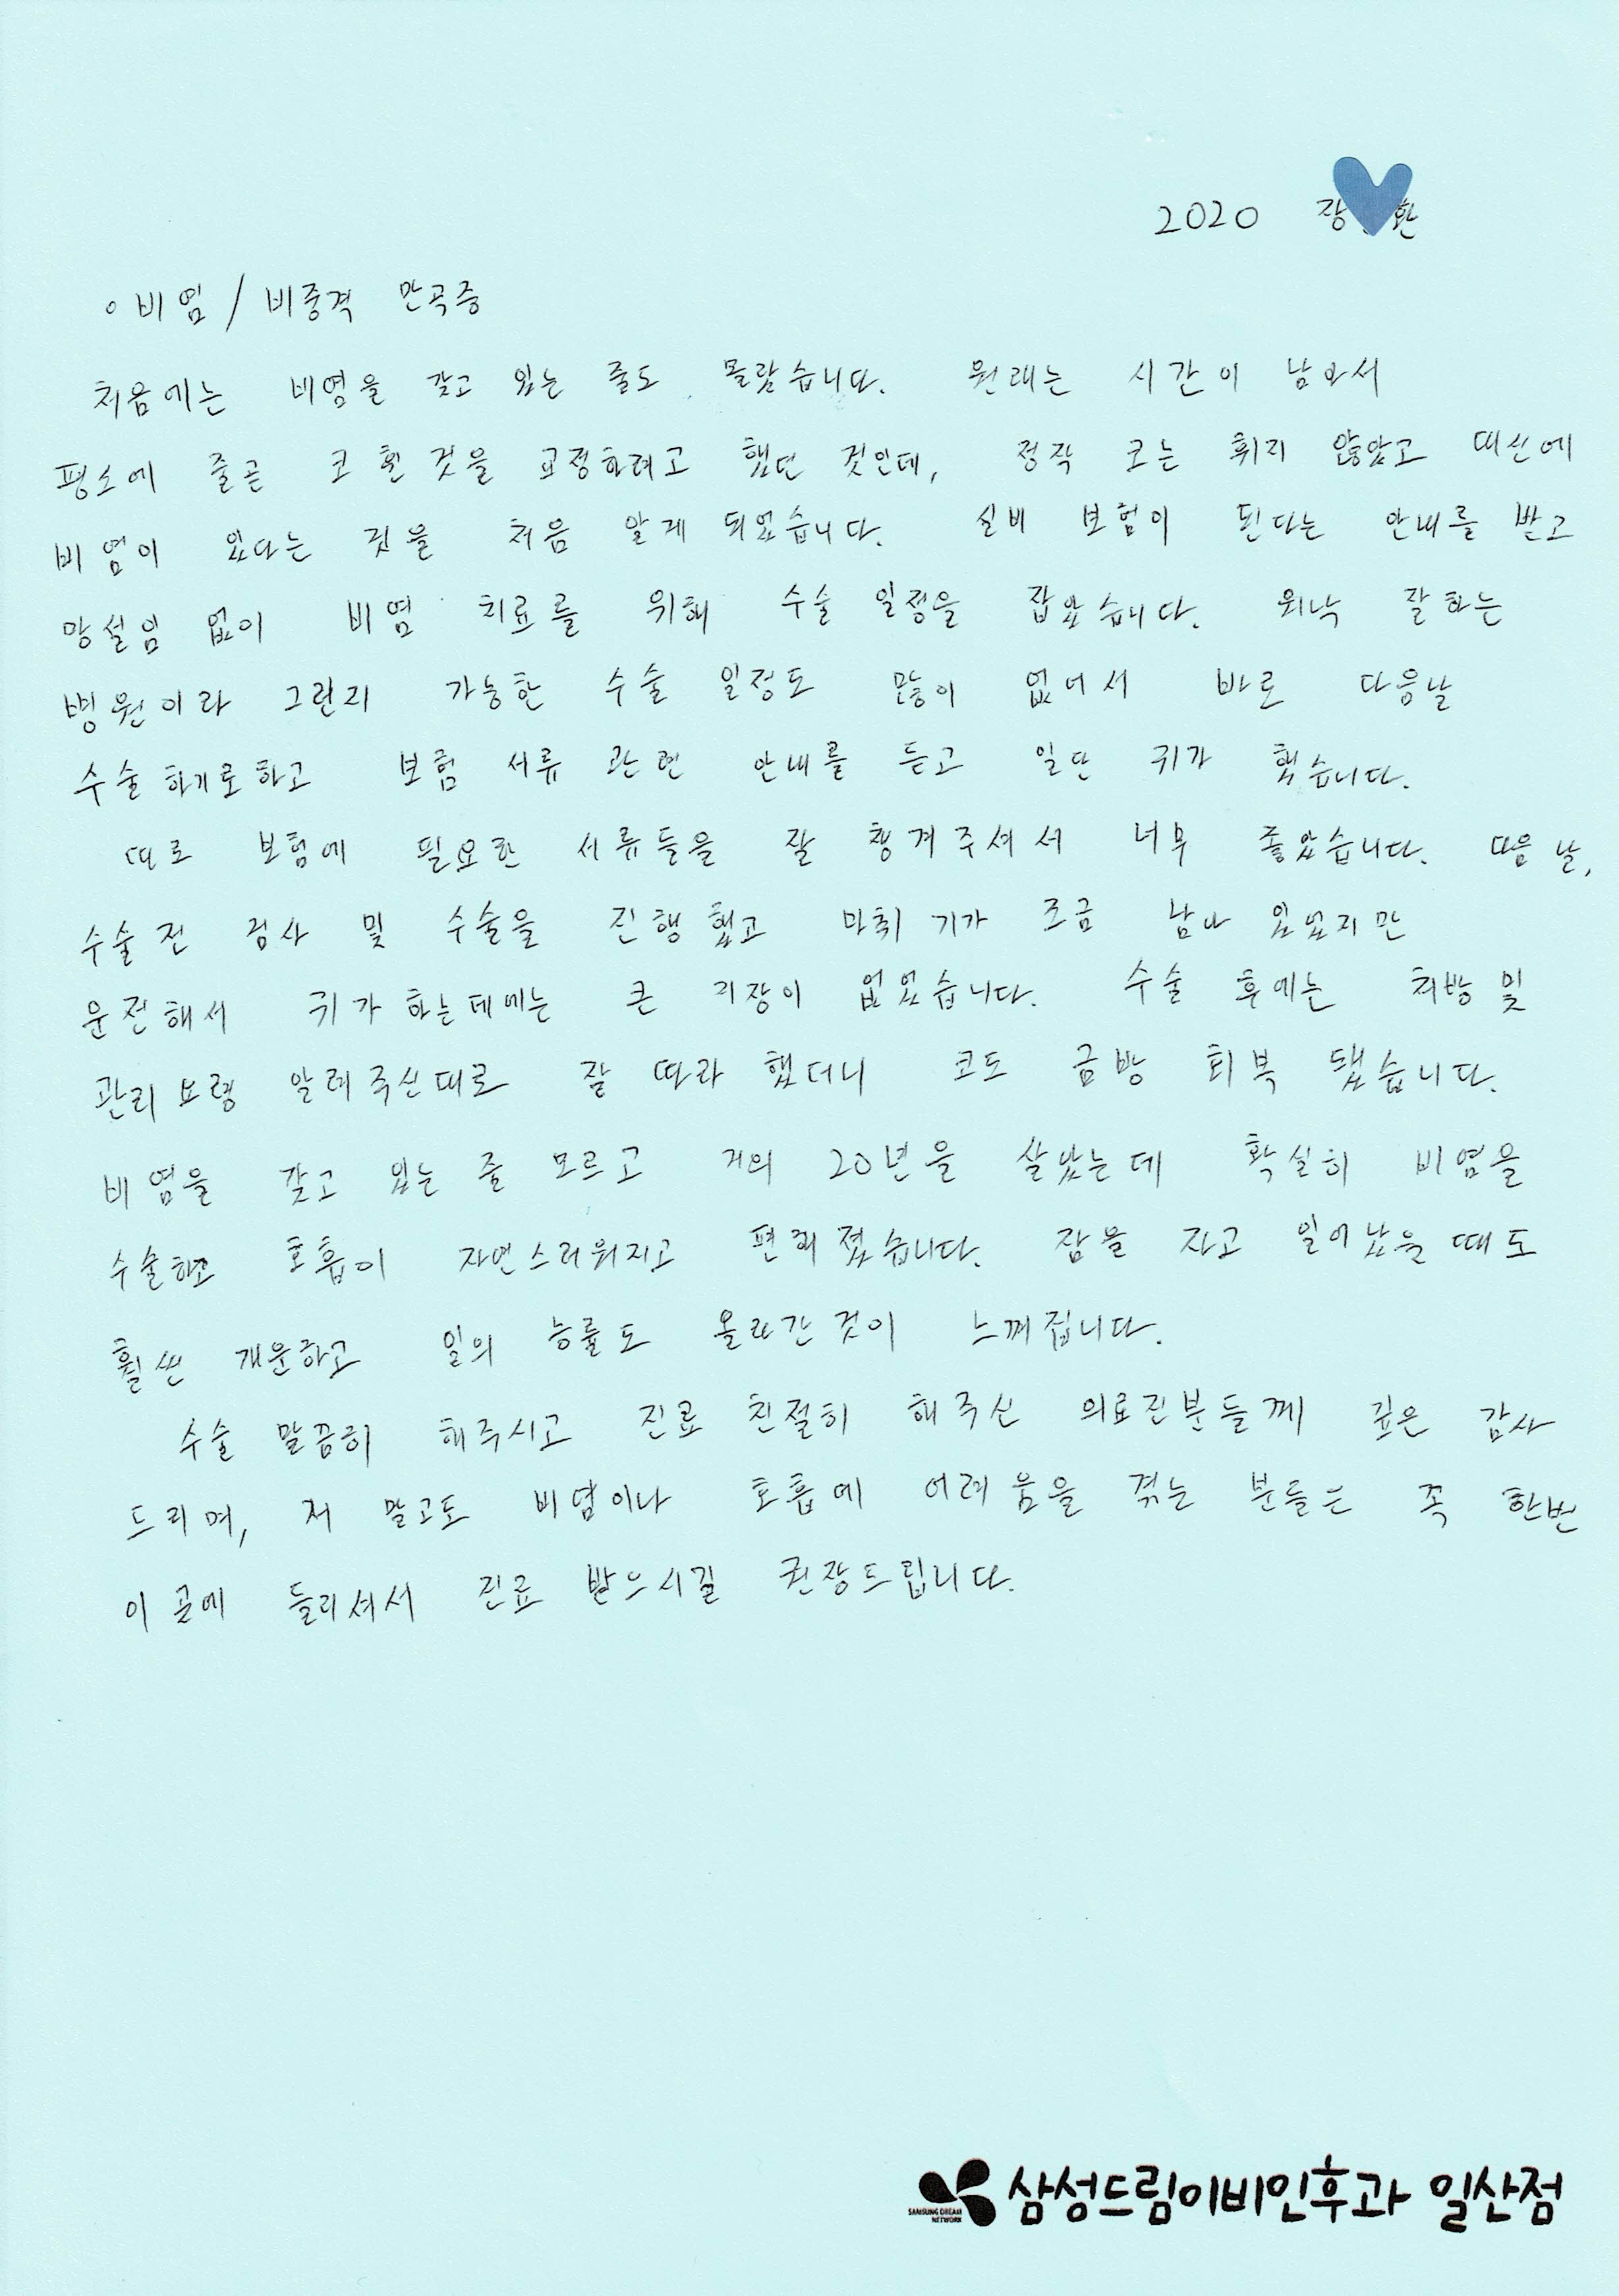 2020 장 환
◦ 비염 / 비중격 만곡증
처음에는 비염을 갖고 있는 줄도 몰랐습니다. 원래는 시간이 남아서
평소에 줄곧 코 휜 것을 교정하려고 했던 것인데, 정작 코는 휘지 않았고 대신에
비염이 있다는 것을 처음 알게 되었습니다. 실비 보험이 된다는 안내를 받고
망설임 없이 비염 치료를 위해 수술 일정을 잡았습니다. 워낙 잘하는
병원이라 그런지 가능한 수술 일정도 많이 없어서 바로 다음날
수술하기로하고 보험 서류 관련 안내를 듣고 일단 귀가 했습니다.
따로 보험에 필요한 서류들을 잘 챙겨주셔서 너무 좋았습니다. 다음 날,
수술 전 검사 및 수술을 진행했고 마취 기가 조금 남아 있었지만
운전해서 귀가 하는데에는 큰 지장이 없었습니다. 수술 후에는 처방 및
관리 요령 알려주신대로 잘 따라 했더니 코도 금방 회복 됐습니다.
비염을 갖고 있는 줄 모르고 거의 20년을 살았는데 확실히 비염을
수술하고 호흡이 자연스러워지고 편해졌습니다. 잠을 자고 일어났을 때도
훨씬 개운하고 일의 능률도 올라간 것이 느껴집니다.
수술 말끔히 해주시고 진료 친절히 해주신 의료진분들께 깊은 감사
드리며, 저 말고도 비염이나 호흡에 어려움을 겪는 분들은 꼭 한번
이 곳에 들리셔서 진료 받으시길 권장드립니다.
SAMSUNG DREAM NETWORK 삼성드림이비인후과 일산점